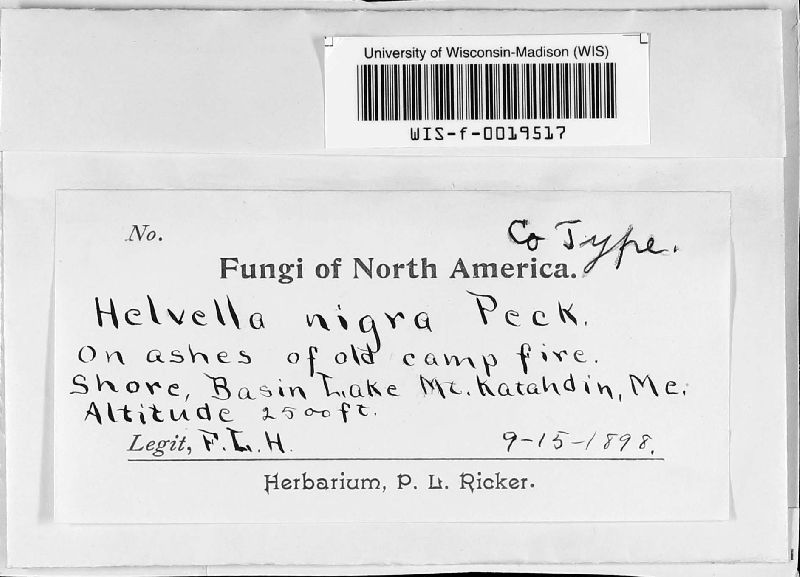 University of Wisconsin-Madison (WIS)
WIS-f-0019517
No.
Co Type.
Fungi of North America.
Helvella nigra Peck.
On ashes of old camp fire.
Shore, Basin Lake Mt. Katahdin, Me.
Altitude 2500 ft.
Legit, F. L. H. 9-15-1898.
Herbarium, P. L. Ricker.